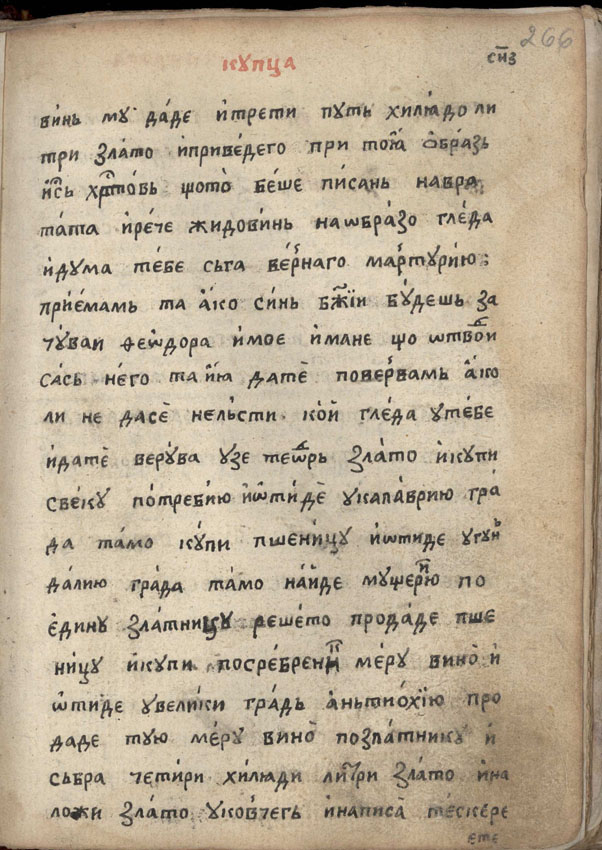 266
купца
сн҃з
винь му да́де и҆трети путь хилꙗ́до ли
три зла́то и҆приве́де го при тои҆а ѻ҆бра́зь
і҆и҃сь хр҃то́вь що то̀ бе́ше пи́сань на вра
та́та и҆ре́че жидови́нь на ѡбра́зо гле́да
и҆дума те́бе сьга ве́рнаго мартурию҆:
прие́мамь та а҆́ко си́нь бж҃їи бу́дешь за
чу́ваи ѳеѡ҆́дора и҆мое и҆мане що ѿтвои
са́сь не́го та и҆ꙗ дате̏ поверꙋвамь а҆́ко
ли не дасе̏ нель́сти ко́й гле́да у те́бе
и҆дате̏ веру́ва узе теѡ҆́рь зла́то и҆купи
све́ку потре́бию и҆ѿтиде̏ у кала́врию гра́
да та́мо ку́пи пшени́цу и҆ѡтиде у гунь
да́лию гра́да та́мо на́йде муще́рию по
е҆дину зла́тницу реше́то прода́де пше
ни́цу и҆купи по сре́бренни ме́ру вино̏ и҆
ѿтиде у вели́ки гра́дь а҆ньтио́хїю про
даде тую ме́ру вино̏ по зла́тнику и҆
сьбра че́тири хи́лꙗди ли́три зла́то и҆на
ложи зла́то у ко́вчегь и҆написа̏ те́скере
еще